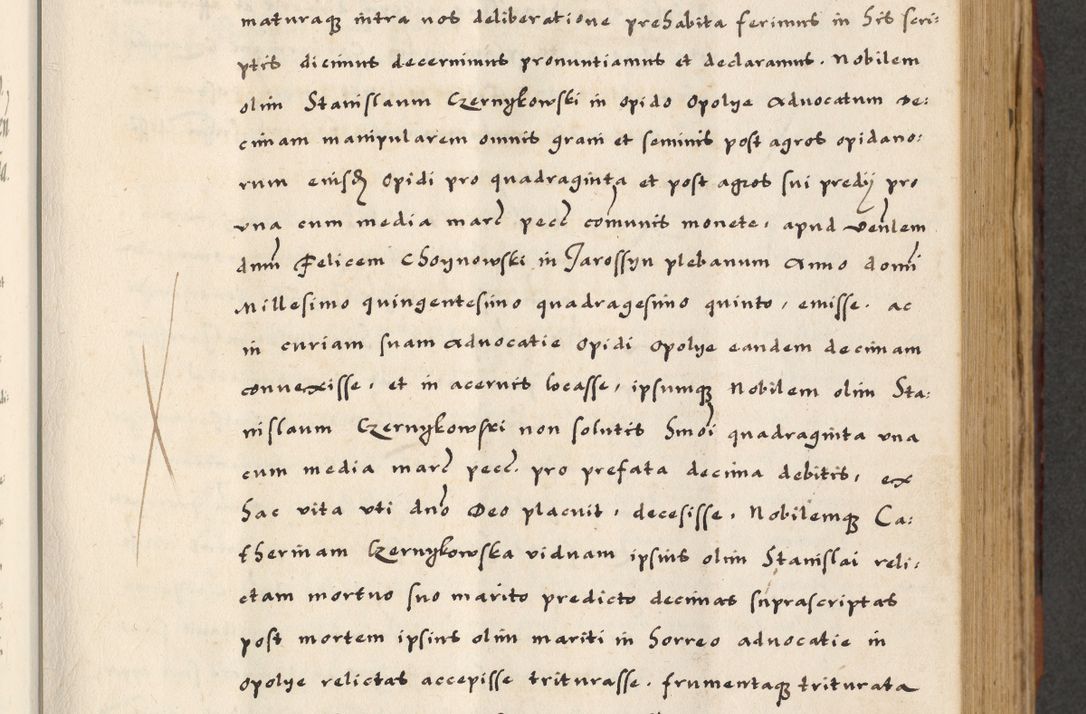 maturaqȝ intra nos deliberatione prehabita ferimus in his scri:
ptis dicimus decernimus pronuntiamus et declaramus. Nobilem
olim Stanislaum Czernykowski in opido Opolye Advocatum de:
cimam manipularem omnis grani et seminis post agros opidano:
rum eiusdꝫ Opidi pro quadraginta et post agros sui predij pro
una cum media marc pecc comunis monete, apud venlem
dnm Felicem Choynowski in Jarossyn plebanum Anno domi
Millesimo quingentesimo quadragesimo quinto, emisse. ac
in curiam suam Advocatie Opidi Opolye eandem decimam
convexisse, et in acervis locasse, ipsumqȝ Nobilem olim Sta:
nislaum Czernykowski non solutis hmoi quadraginta una
cum media marc pecc. pro prefata decima debitis, ex
hac vita uti dno Deo placuit, decesisse, Nobilemqȝ Ca:
therinam Czernykowska viduam ipsius olim Stanislai reli:
ctam mortuo suo marito predicto decimas suprascriptas
post mortem ipsius olim mariti in horreo advocatie in
Opolye relictas accepisse triturasse. frumentaqȝ triturata